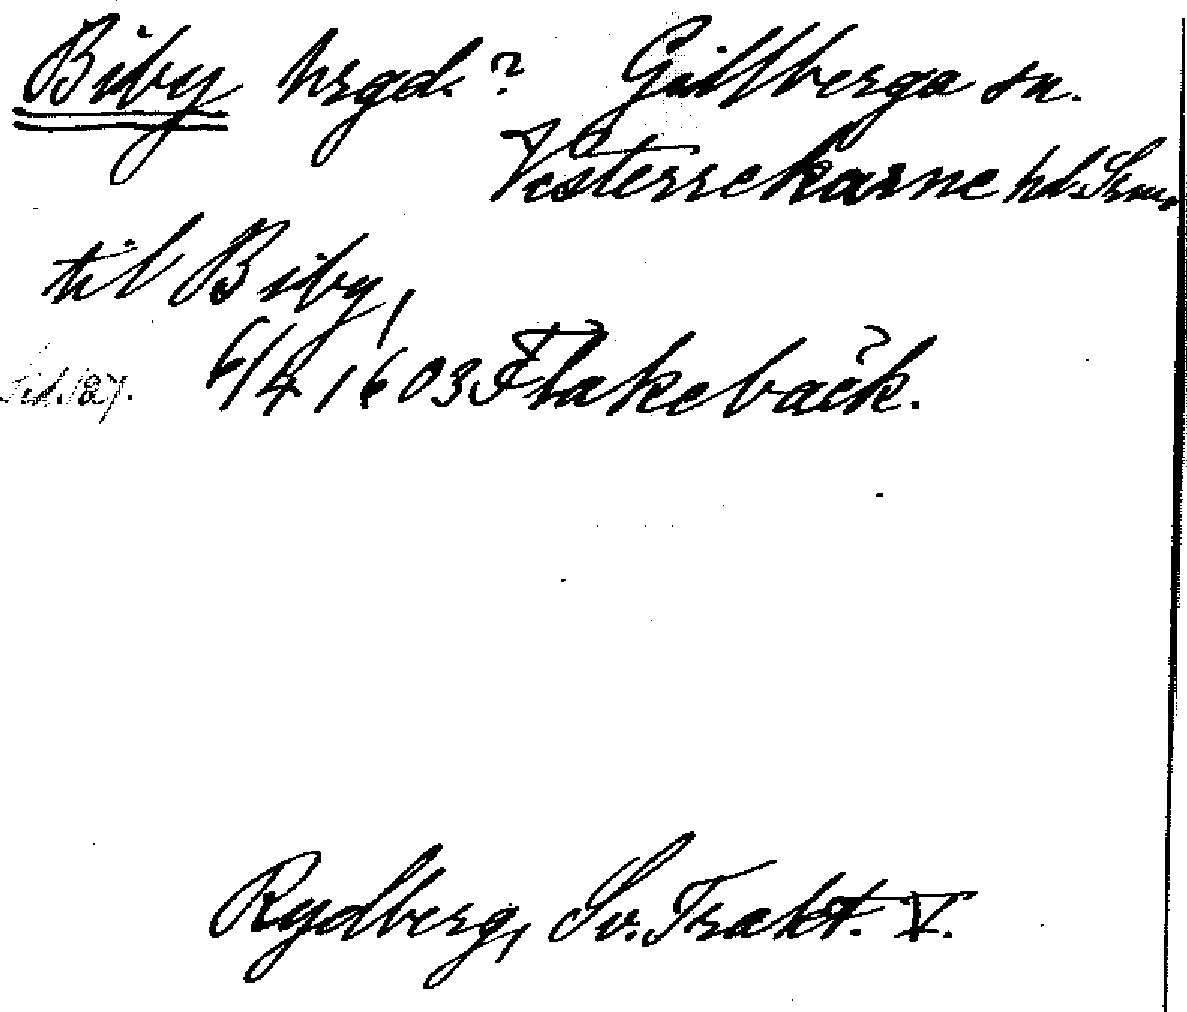 Biby hrgd.? Gillberga sn.
Västerrekarne hd. Srm.
til Biby,
Sid. 127. 6/4 1603 Flakebäck.
Rydberg, Sv. Trakt. V.